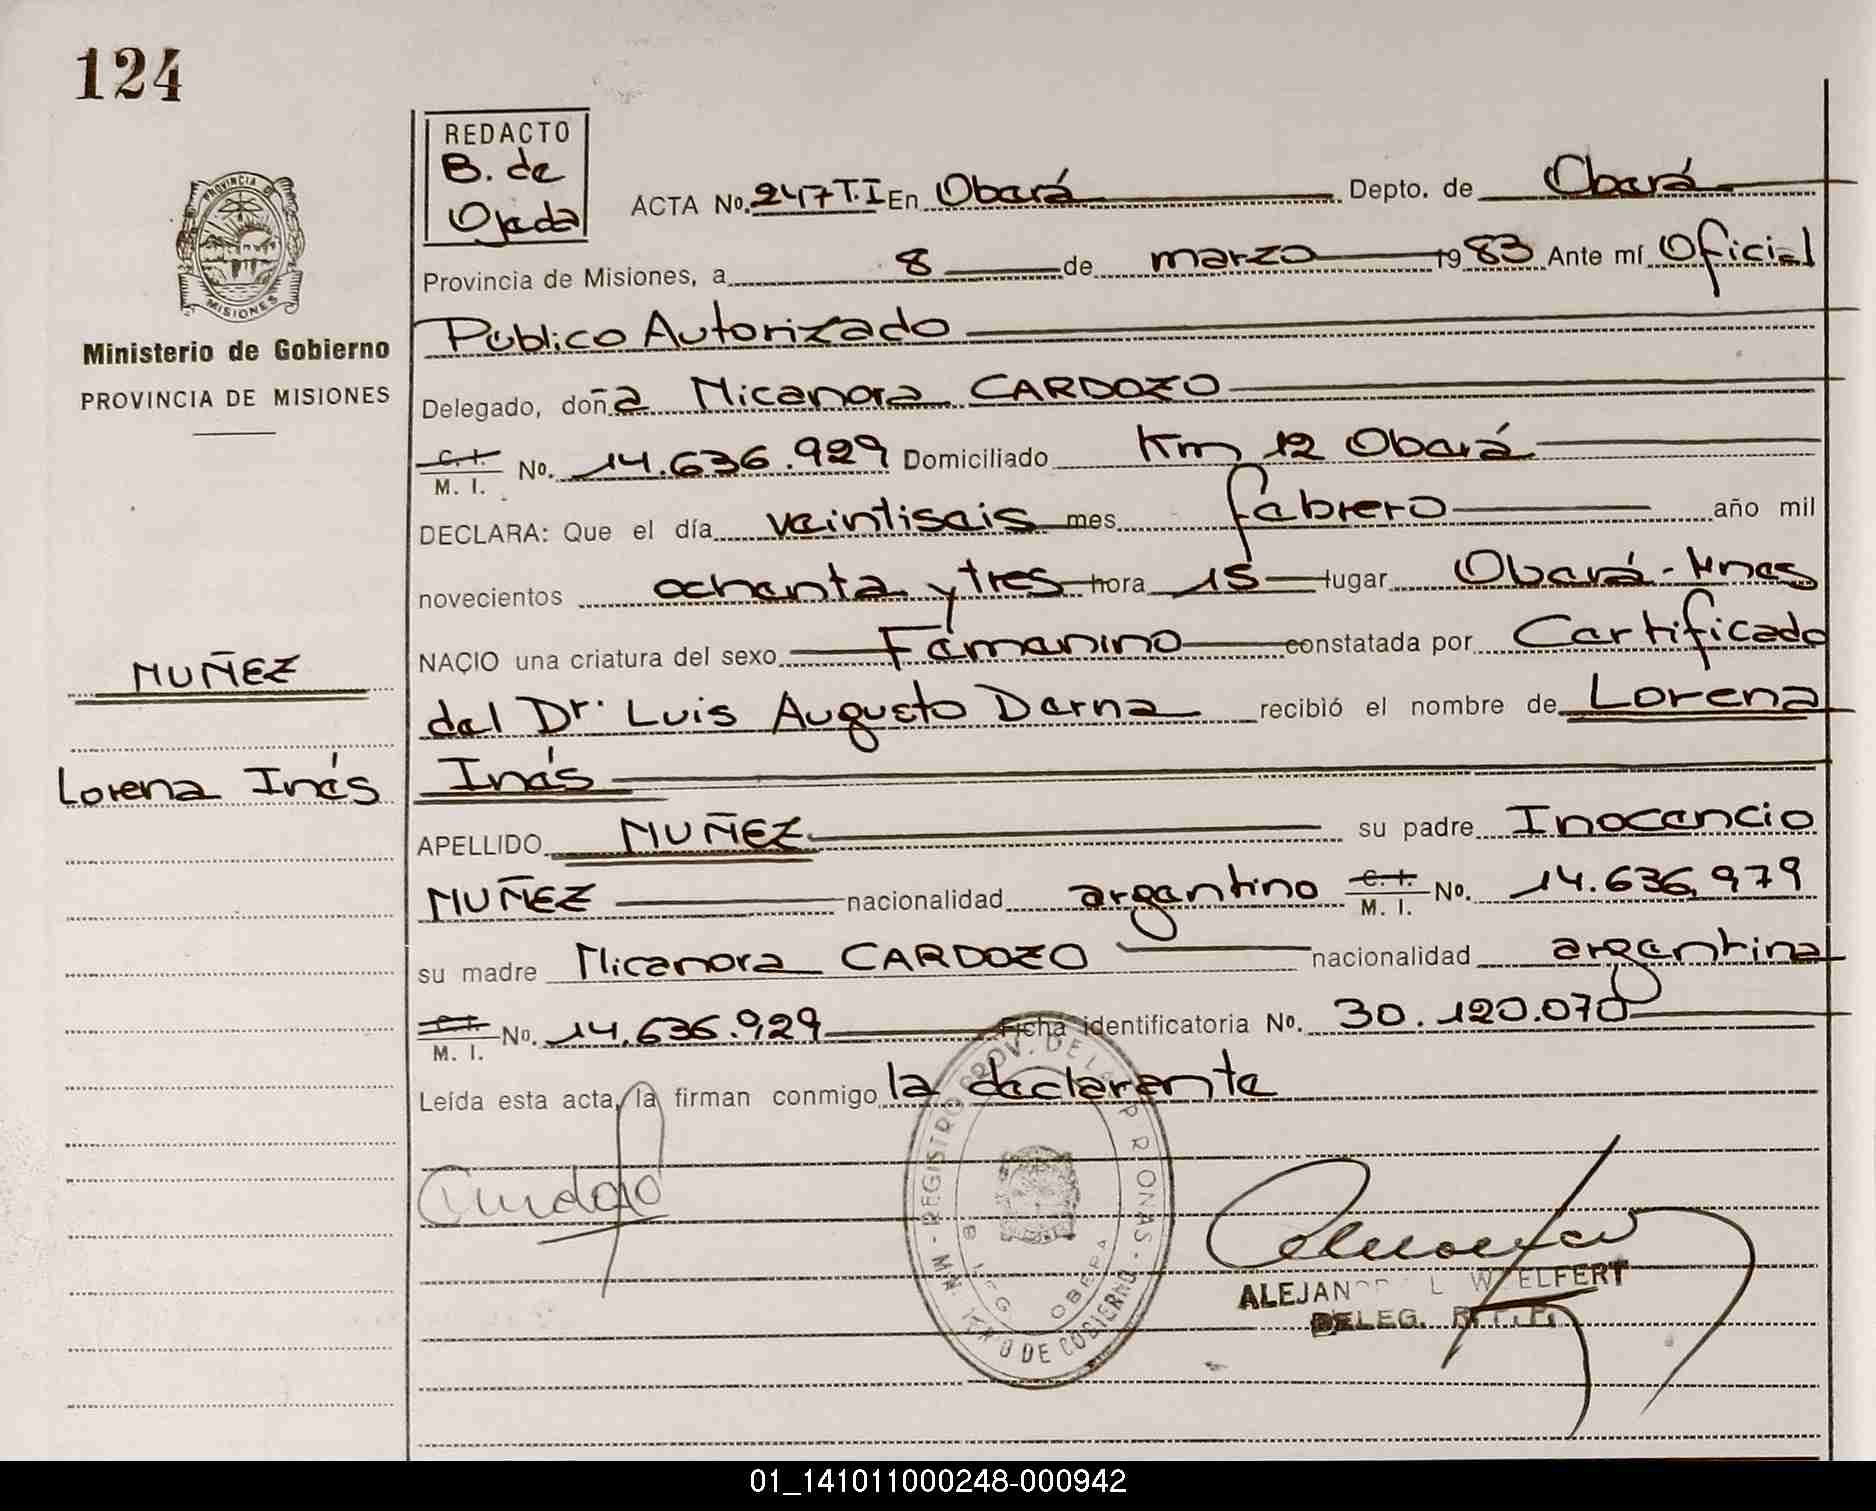 124
REDACTO
B. de
Ojeda
PROVINCIA DE
MISIONES
Ministerio de Gobierno
PROVINCIA DE MISIONES
ACTA No. 247 T.I En Oberá Depto. de Oberá
Provincia de Misiones, a 8 de marzo 1983 Ante mí Oficial
Público Autorizado
Delegado, doña Nicanora CARDOZO
C. I.
M. I. No. 14.636.929 Domiciliado Km 12 Oberá
DECLARA: Que el día veintiseis mes febrero año mil
novecientos ochenta y tres hora 15 lugar Oberá - Mnes
NACIO una criatura del sexo Femenino constatada por Certificado
del Dr. Luis Augusto Derna recibió el nombre de Lorena
Inés
NUÑEZ
Lorena Inés
APELLIDO NUÑEZ su padre Inocencio
NUÑEZ nacionalidad argentino C. I. M. I. No. 14.636.979
su madre Nicanora CARDOZO nacionalidad argentina
C. I.
M. I. No. 14.636.929 Ficha identificatoria No. 30.120.070
Leída esta acta, la firman conmigo la declarante
REGISTRO PROV. DE LAS PERSONAS - MINISTERIO DE GOBIERNO
OBERA
ALEJANDRO L. WOELFERT
DELEG. R.P.P.
01_141011000248-000942